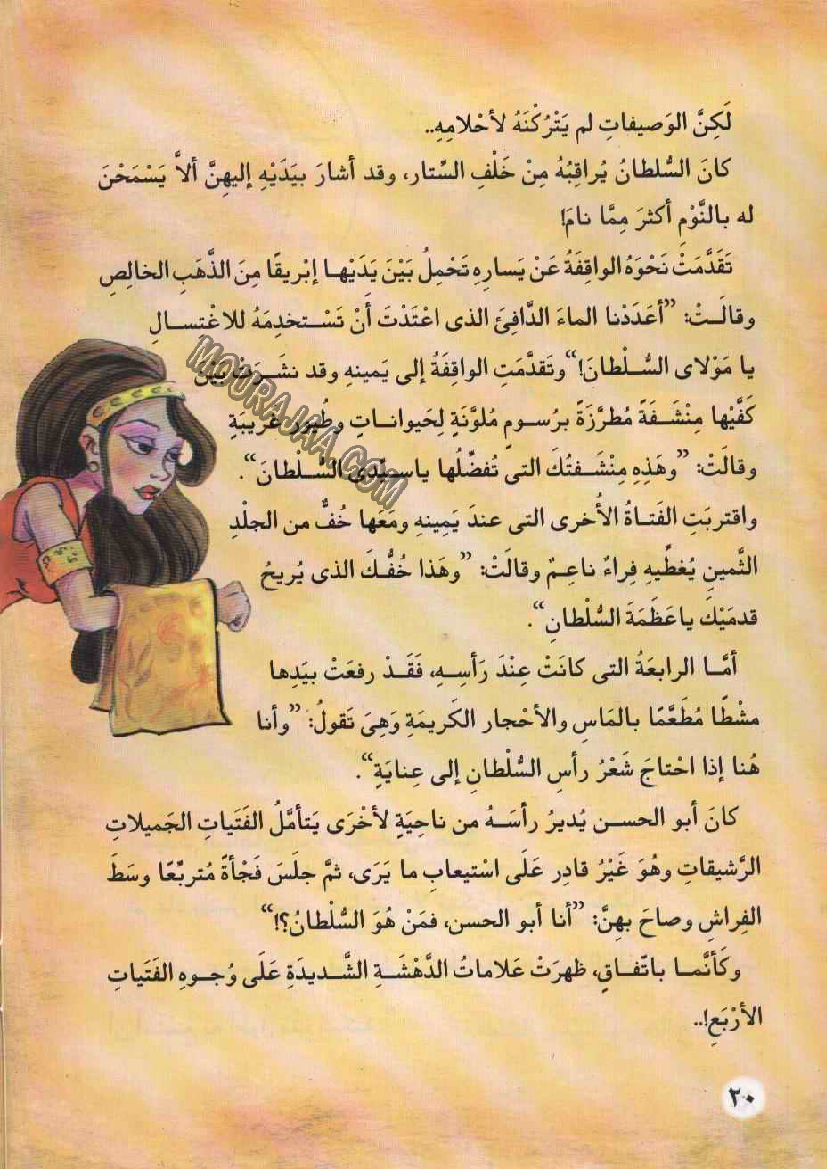 لَكِنَّ الوَصيفاتِ لم يَتْرُكْنَهُ لأحْلامِهِ..
كانَ السُّلطانُ يُراقِبُهُ مِنْ خَلْفِ السِّتار، وقد أشارَ بيَدَيْهِ إليهِنَّ ألاَّ يَسْمَحْنَ
له بالنَّوْمِ أكثرَ مِمَّا نامَ!
تَقَدَّمَتْ نَحْوَهُ الواقِفَةُ عَنْ يَسارِهِ تَحْمِلُ بَيْنَ يَدَيْها إبْريقًا مِنَ الذَّهَبِ الخالِصِ
وقالَتْ: ”أعْدَدْنا الماءَ الدَّافِئَ الذى اعْتَدْتَ أنْ تَسْتخدِمَهُ للاغْتسالِ
يا مَوْلاى السُّلْطانَ!“ وتَقدَّمَتِ الواقِفَةُ إلى يَمينهِ وقد نشَرَتْ بَيْنَ
كَفَّيْها مِنْشَفَةً مُطرَّزَةً برُسومٍ مُلوَّنَةٍ لِحَيواناتٍ وطُيورٍ غَريبَةٍ
وقالَتْ: ”وهَذِهِ مِنْشَفتُكَ التى تُفضِّلُها ياسيِّدى السُّلطانَ“.
واقتربَتِ الفَتاةُ الأُخرى التى عندَ يَمِينهِ ومَعَها خُفٌّ من الجلْدِ
الثَّمينِ يُغطِّيهِ فِراءٌ ناعِمٌ وقالَتْ: ”وهَذا خُفُّكَ الذى يُريحُ
قدمَيْكَ ياعَظَمَةَ السُّلْطانِ“.
أمَّا الرابعَةُ التى كانَتْ عِنْدَ رَأسِهِ، فَقَدْ رفعَتْ بيَدِها
مشْطًا مُطَعَّمًا بالمَاسِ والأحْجار الكَريمَةِ وَهِىَ تَقولُ: ”وأنا
هُنا إذا احْتاجَ شَعْرُ رأسِ السُّلْطانِ إلى عِنايَةٍ“.
كانَ أبو الحسن يُديرُ رأسَهُ من ناحِيَةٍ لأخْرَى يَتأمَّلُ الفَتَياتِ الجَميلاتِ
الرَّشيقاتِ وهُوَ غَيْرُ قادِرٍ عَلَى اسْتيعابِ ما يَرَى، ثمَّ جلَسَ فَجْأةً مُتربِّعًا وسَطَ
الفِراشِ وصاحَ بهِنَّ: ”أنا أبو الحسن، فمَنْ هُوَ السُّلْطانُ؟!“
وكَأنَّما باتّفاقٍ، ظهرَتْ عَلاماتُ الدَّهْشَةِ الشَّديدَةِ عَلَى وُجوهِ الفَتَياتِ
الأرْبَعِ!..
٢٠
MOURAJAA.COM